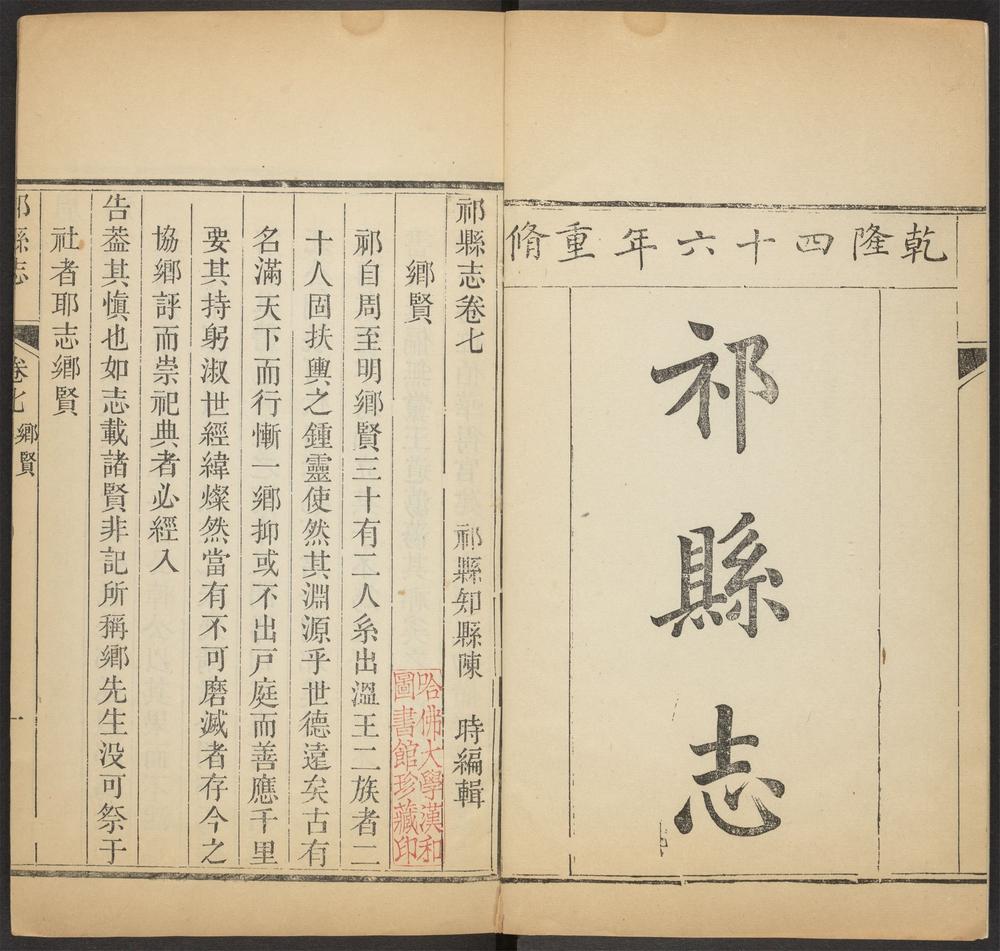 乾隆四十六年重脩
祁縣志
祁縣志卷七
祁縣知縣陳 時編輯
鄉賢
哈佛大學漢和
圖書館珍藏印
祁自周至明鄉賢三十有二人系出溫王二族者二
十人固扶輿之鍾靈使然其淵源乎世德遠矣古有
名滿天下而行慚一鄉抑或不出戸庭而善應千里
要其持躬淑世經緯燦然當有不可磨滅者存今之
協鄉評而崇祀典者必經入
告葢其愼也如志載諸賢非記所稱鄉先生没可祭于
社者耶志鄉賢
祁縣志 卷七 鄉賢 一